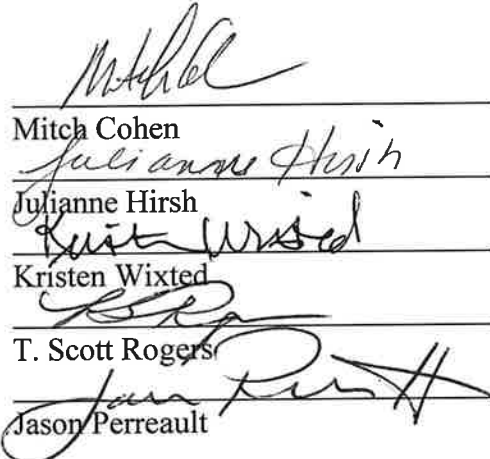 Mitch Cohen
Julianne Hirsh
Julianne Hirsh
Kristen Wixted
Kristen Wixted
T. Scott Rogers
Jason Perreault